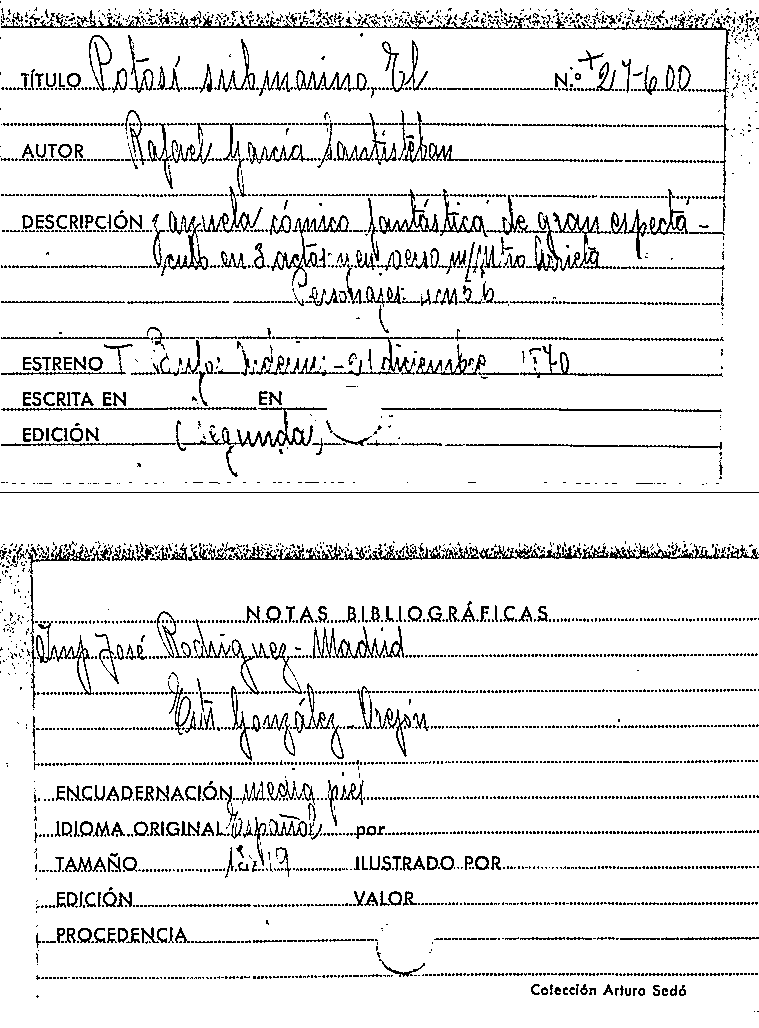 TÍTULO Potosí submarino, El N.º 217-600
AUTOR Rafael García Santisteban
DESCRIPCIÓN zarzuela cómico fantástica de gran espectá-
culo en 3 actos y en verso m/ Mtro Arrieta
Personajes:
ESTRENO T. diciembre
ESCRITA EN EN
EDICIÓN (Segunda)
NOTAS BIBLIOGRÁFICAS
Imp José Rodríguez - Madrid
Edit González Orejón
ENCUADERNACIÓN media piel
IDIOMA ORIGINAL Español por
TAMAÑO ILUSTRADO POR
EDICIÓN VALOR
PROCEDENCIA
Colección Arturo Sedó